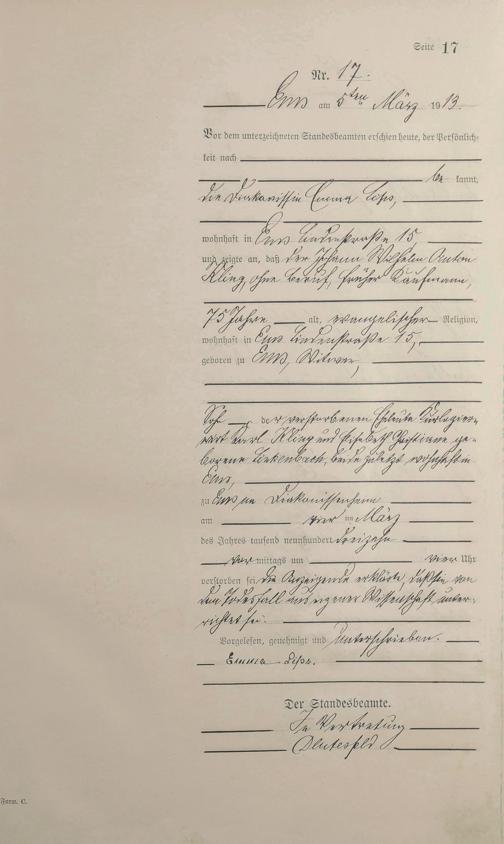 Seite 17
Nr. 17.
Ems am 5ten März 1913.
Vor dem unterzeichneten Standesbeamten erschien heute, der Persönlich-
keit nach
be kannt,
die Diakonissin Emma
wohnhaft in Ems Lindenstraße 15,
und zeigte an, daß der Johann Wilhelm Anton
Kling, ohne Beruf, früher Kaufmann,
75 Jahre alt, evangelischer Religion,
wohnhaft in Ems Lindenstraße 15,
geboren zu Ems, Witwer,
Sohn der verstorbenen Eheleute
Karl Kling und Elisabeth Christiane ge-
borene beide zuletzt wohnhaft in
Ems,
zu Ems im Diakonissenheim
am vier ten März
des Jahres tausend neunhundert dreizehn
vor mittags um vier Uhr
verstorben sei. Die Anzeigende erklärte, daß sie von
dem Todesfall aus eigener Wissenschaft unter-
richtet sei.
Vorgelesen, genehmigt und unterschrieben.
Emma
Der Standesbeamte.
In Vertretung
Form. C.